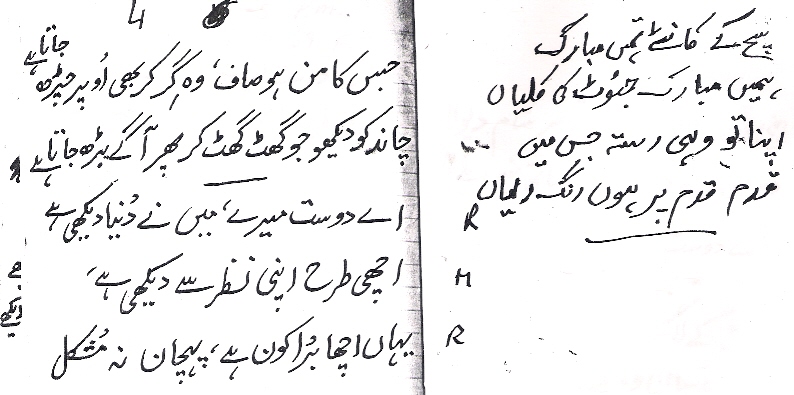 سچ کے کانٹے تمہیں مبارک
ہمیں مبارک جھوٹ کی کلیاں
اپنا تو وہی رستہ جس میں
قدم قدم پر ہوں رنگ رلیاں
4
جس کا من ہو صاف، وہ گر کر بھی اُوپر چڑھ جاتا ہے
چاند کو دیکھو جو گھٹ گھٹ کر پھر آگے بڑھ جاتا ہے
R
اے دوست میرے، میں نے دُنیا دیکھی ہے
M
اچھی طرح اپنی نظر سے دیکھی ہے،
R
یہاں اچھا بُرا کون ہے، پہچان نہ مُشکل